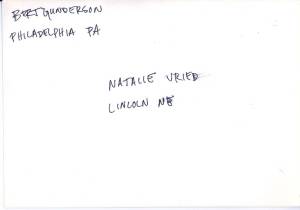 BERT GUNDERSON
PHILADELPHIA PA
NATALIE VRIED
LINCOLN NE